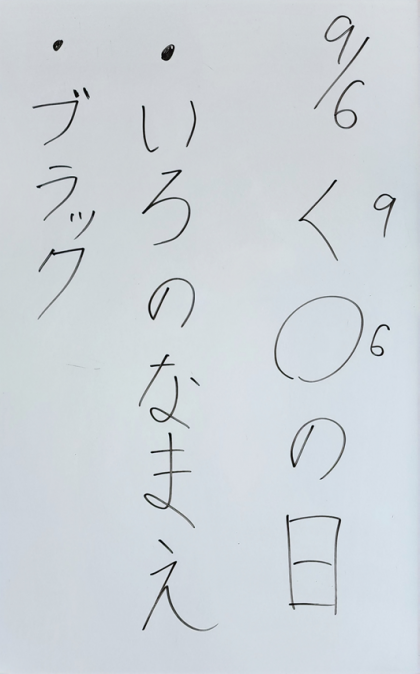 9/6
く〇の日
9
6
・いろのなまえ
・ブラック